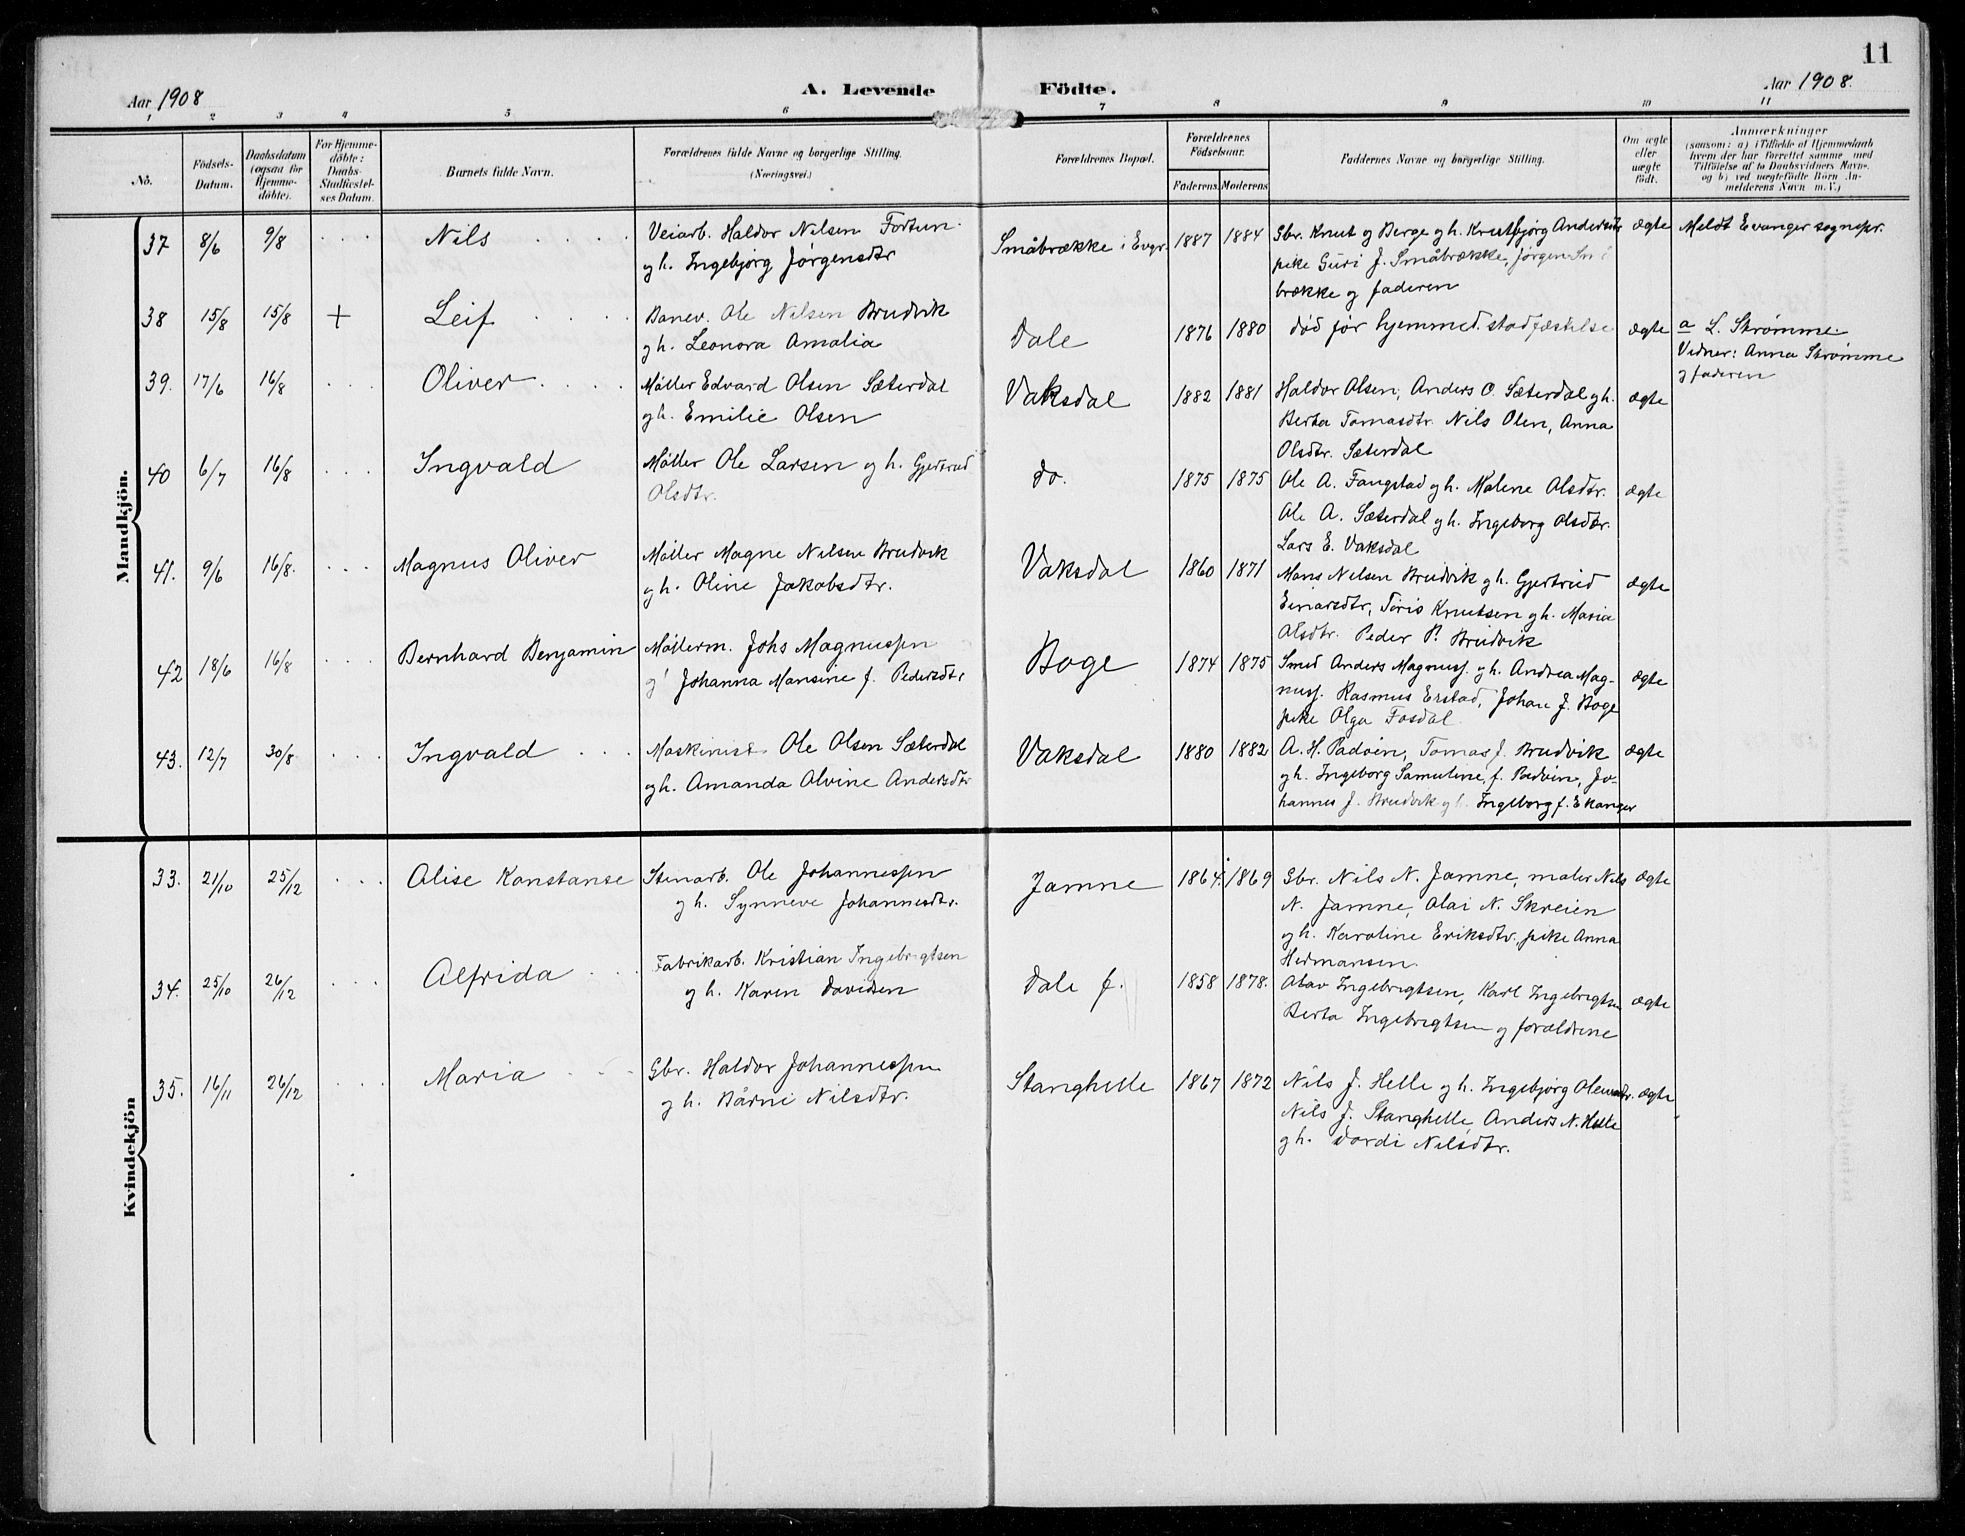 11
Aar 1908
A. Levende Födte.
Aar 1908.
1 2 3 4 5 6 7 8 9 10 11
No.
Födsels-
Datum.
Daabsdatum
(ogsaa for
Hjemme-
döbte).
For Hjemme-
döbte:
Daabs-
Stadfæstel-
ses Datum.
Barnets fulde Navn.
Forældrenes fulde Navne og borgerlige Stilling.
(Næringsvei.)
Forældrenes Bopæl.
Forældrenes
Födselsaar.
Faderens Moderens
Faddernes Navne og borgerlige Stilling.
Om ægte
eller
uægte
födt.
Anmærkninger
(saasom: a) i Tilfælde af Hjemmedaab
hvem der har forrettet samme med
Tilföielse af to Daabsvidners Navne.
og b) ved uægtefödte Börn An-
melderens Navn m. V.)
Mandkjön.
37 8/6 9/8 Nils
Veiarb. Haldor Nilsen Fortun
gh. Ingebjørg Jørgensdtr
Småbrække i Evgr. 1887 1884
Gbr. Knut og Berge gh. Knutbjørg Andersdtr
pike Guri J. Småbrække, Jørgen
brække og faderen
ægte
Meldt Evanger sognepr.
38 15/8 15/8 + Leif
Banev. Ole Nilsen Brudvik
gh. Leonora Amalia
Dale 1876 1880
død før hjemmed. stadfæstelse
ægte
a L. Skrømme
Vidner: Anna Skrømme
og faderen
39. 17/6 16/8 Oliver
Møller Edvard Olsen Sæterdal
gh. Emilie Olsen
Vaksdal 1882 1881
Haldor Olsen, Anders O. Sæterdal gh.
Berta Tomasdtr. Nils Olen, Anna
Olsdtr. Sæterdal
ægte
40 6/7 16/8 Ingvald
Møller Ole Larsen gh. Gjertrud
Olsdtr.
do. 1875 1875
Ole A. Fangstad gh. Malene Olsdtr.
Ole A. Sæterdal gh. Ingeborg Olsdtr.
Lars E. Vaksdal
ægte
41. 9/6 16/8. Magnus Oliver
Møller Magne Nilsen Brudvik
gh. Oline Jakobsdtr.
Vaksdal 1860 1871
Mons Nilsen Brudvik gh. Gjertrud
Einarsdtr, Toris Knutsen gh. Maria
Olsdtr. Peder P. Brudvik
ægte
42 18/6 16/8 Bernhard Benjamin
Møllerm. Johs Magnussen
g' Johanna Monsine f. Pedersdtr
Boge 1874 1875
Smed Anders Magnuss. gh. Andrea Mag-
nuss. Rasmus Erstad, Johan J. Boge
pike Olga Fosdal
ægte
43. 12/7 30/8 Ingvald
Maskinist Ole Olsen Sæterdal
gh. Amanda Alvine Andersdtr
Vaksdal 1880 1882
A. H. Padøin, Tomas J. Brudvik
gh. Ingeborg Samuline f. Padøin, Jo-
hannes J. Brudvik gh. Ingeborg f. Ekanger
ægte
Kvindekjön
33. 21/10 25/12 Alise Konstanse
Stenarb. Ole Johannessen
gh. Synneve Johannesdtr.
Jamne 1864. 1869
Gbr. Nils N. Jamne, maler Nils
N. Jamne, Olai N. Skreien
gh. Karoline Eriksdtr. pike Anna
Hermansen
ægte
34. 25/10 26/12 Alfrida
Fabrikarb. Kristian Ingebrigtsen
gh. Karen Davidsen
Dale f. 1858 1878.
Olav Ingebrigtsen, Karl Ingebrigtsen
Berta Ingebrigtsen og forældrene
ægte
35. 16/11 26/12 Maria
Gbr. Haldor Johannessen
gh. Bårni Nilsdtr.
Stanghelle 1867 1872
Nils J. Helle gh. Ingebjørg
Nils J. Stanghelle Anders N. Helle
gh. Dordi Nilsdtr.
ægte